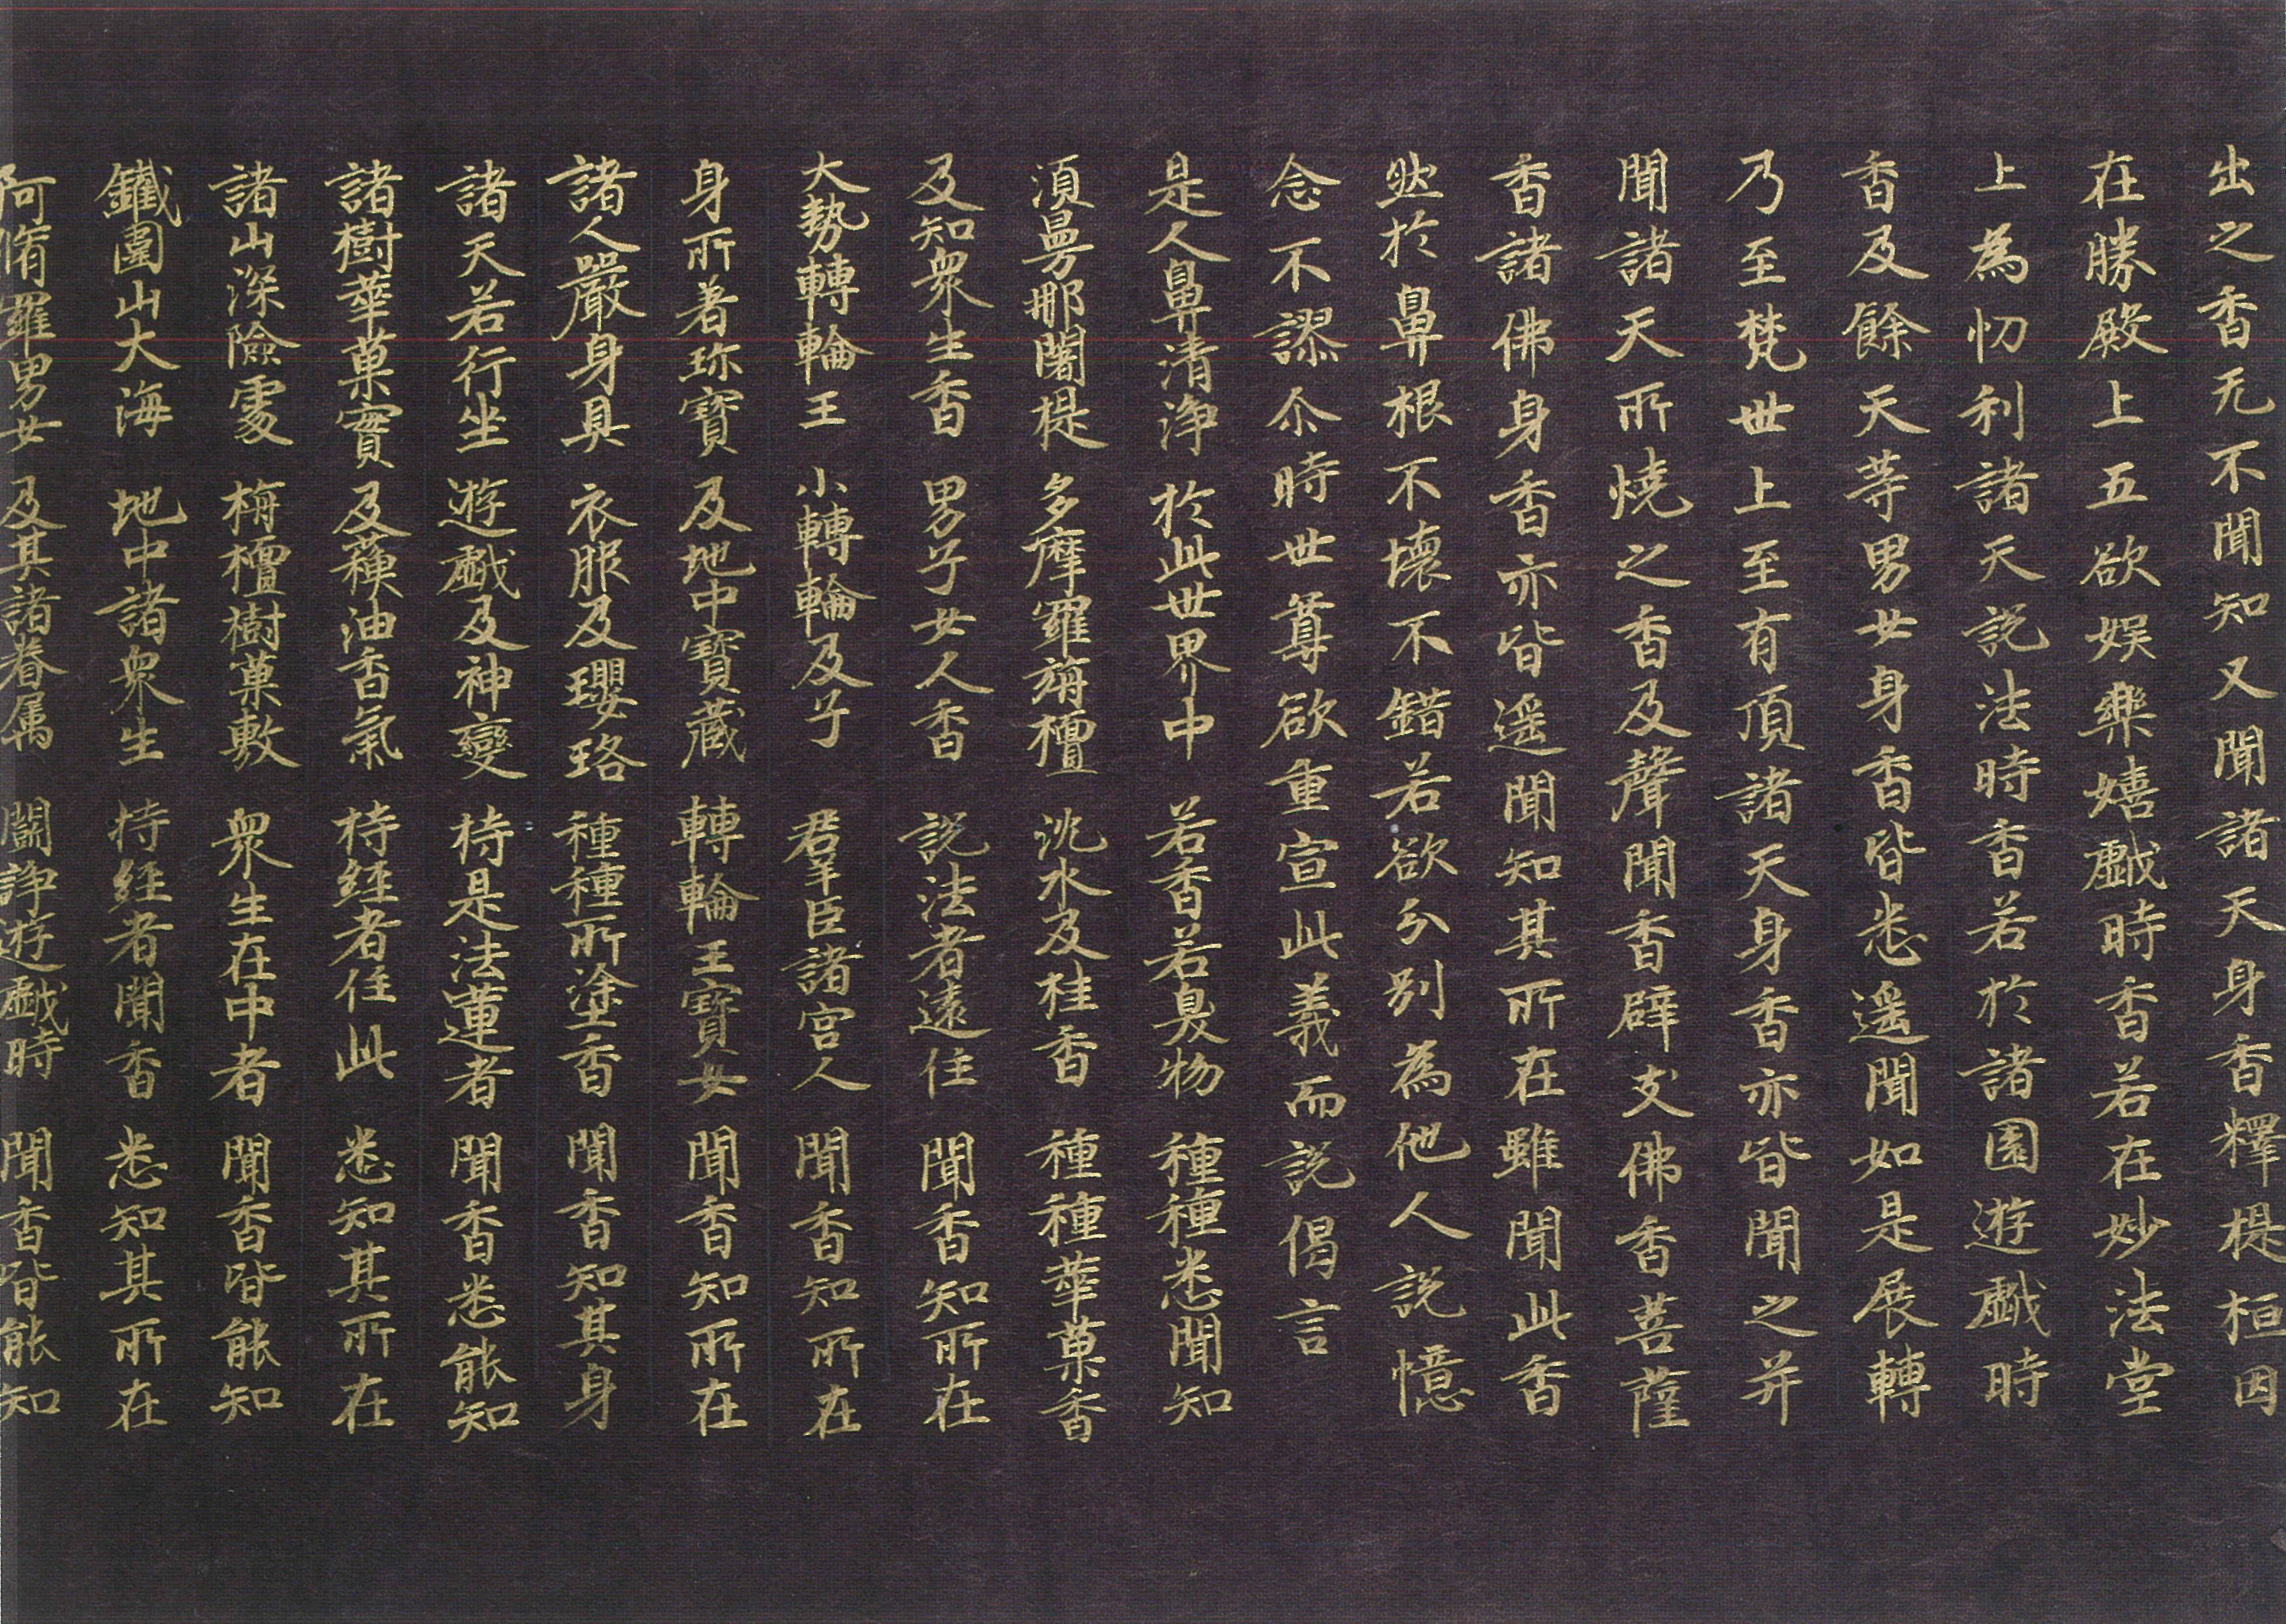 出之香无不聞知又聞諸天身香釋提桓因
在勝殿上五欲娯樂嬉戱時香若在妙法堂
上為忉利諸天説法時香若於諸園遊戱時
香及餘天等男女身香皆悉遥聞如是展轉
乃至梵世上至有頂諸天身香亦皆聞之并
聞諸天所焼之香及聲聞香辟支佛香菩薩
香諸佛身香亦皆遥聞知其所在雖聞此香
然於鼻根不壞不錯若欲分別為他人説憶
念不謬尒時世尊欲重宣此義而説偈言
是人鼻清浄 於此世界中 若香若臭物 種種悉聞知
湏曼那闍提 多摩羅栴檀 沈水及桂香 種種華菓香
及知衆生香 男子女人香 説法者遠住 聞香知所在
大勢轉輪王 小轉輪及子 羣臣諸宮人 聞香知所在
身所著珎寳 及地中寳蔵 轉輪王寳女 聞香知所在
諸人嚴身具 衣服及瓔珞 種種所塗香 聞香知其身
諸天若行坐 遊戱及神變 持是法蓮者 聞香悉能知
諸樹華菓實 及蘓油香氣 持経者住此 悉知其所在
諸山深險處 栴檀樹菓敷 衆生在中者 聞香皆能知
鐵圍山大海 地中諸衆生 持経者聞香 悉知其所在
阿脩羅男女 及其諸眷属 闘諍遊戱時 聞香皆能知